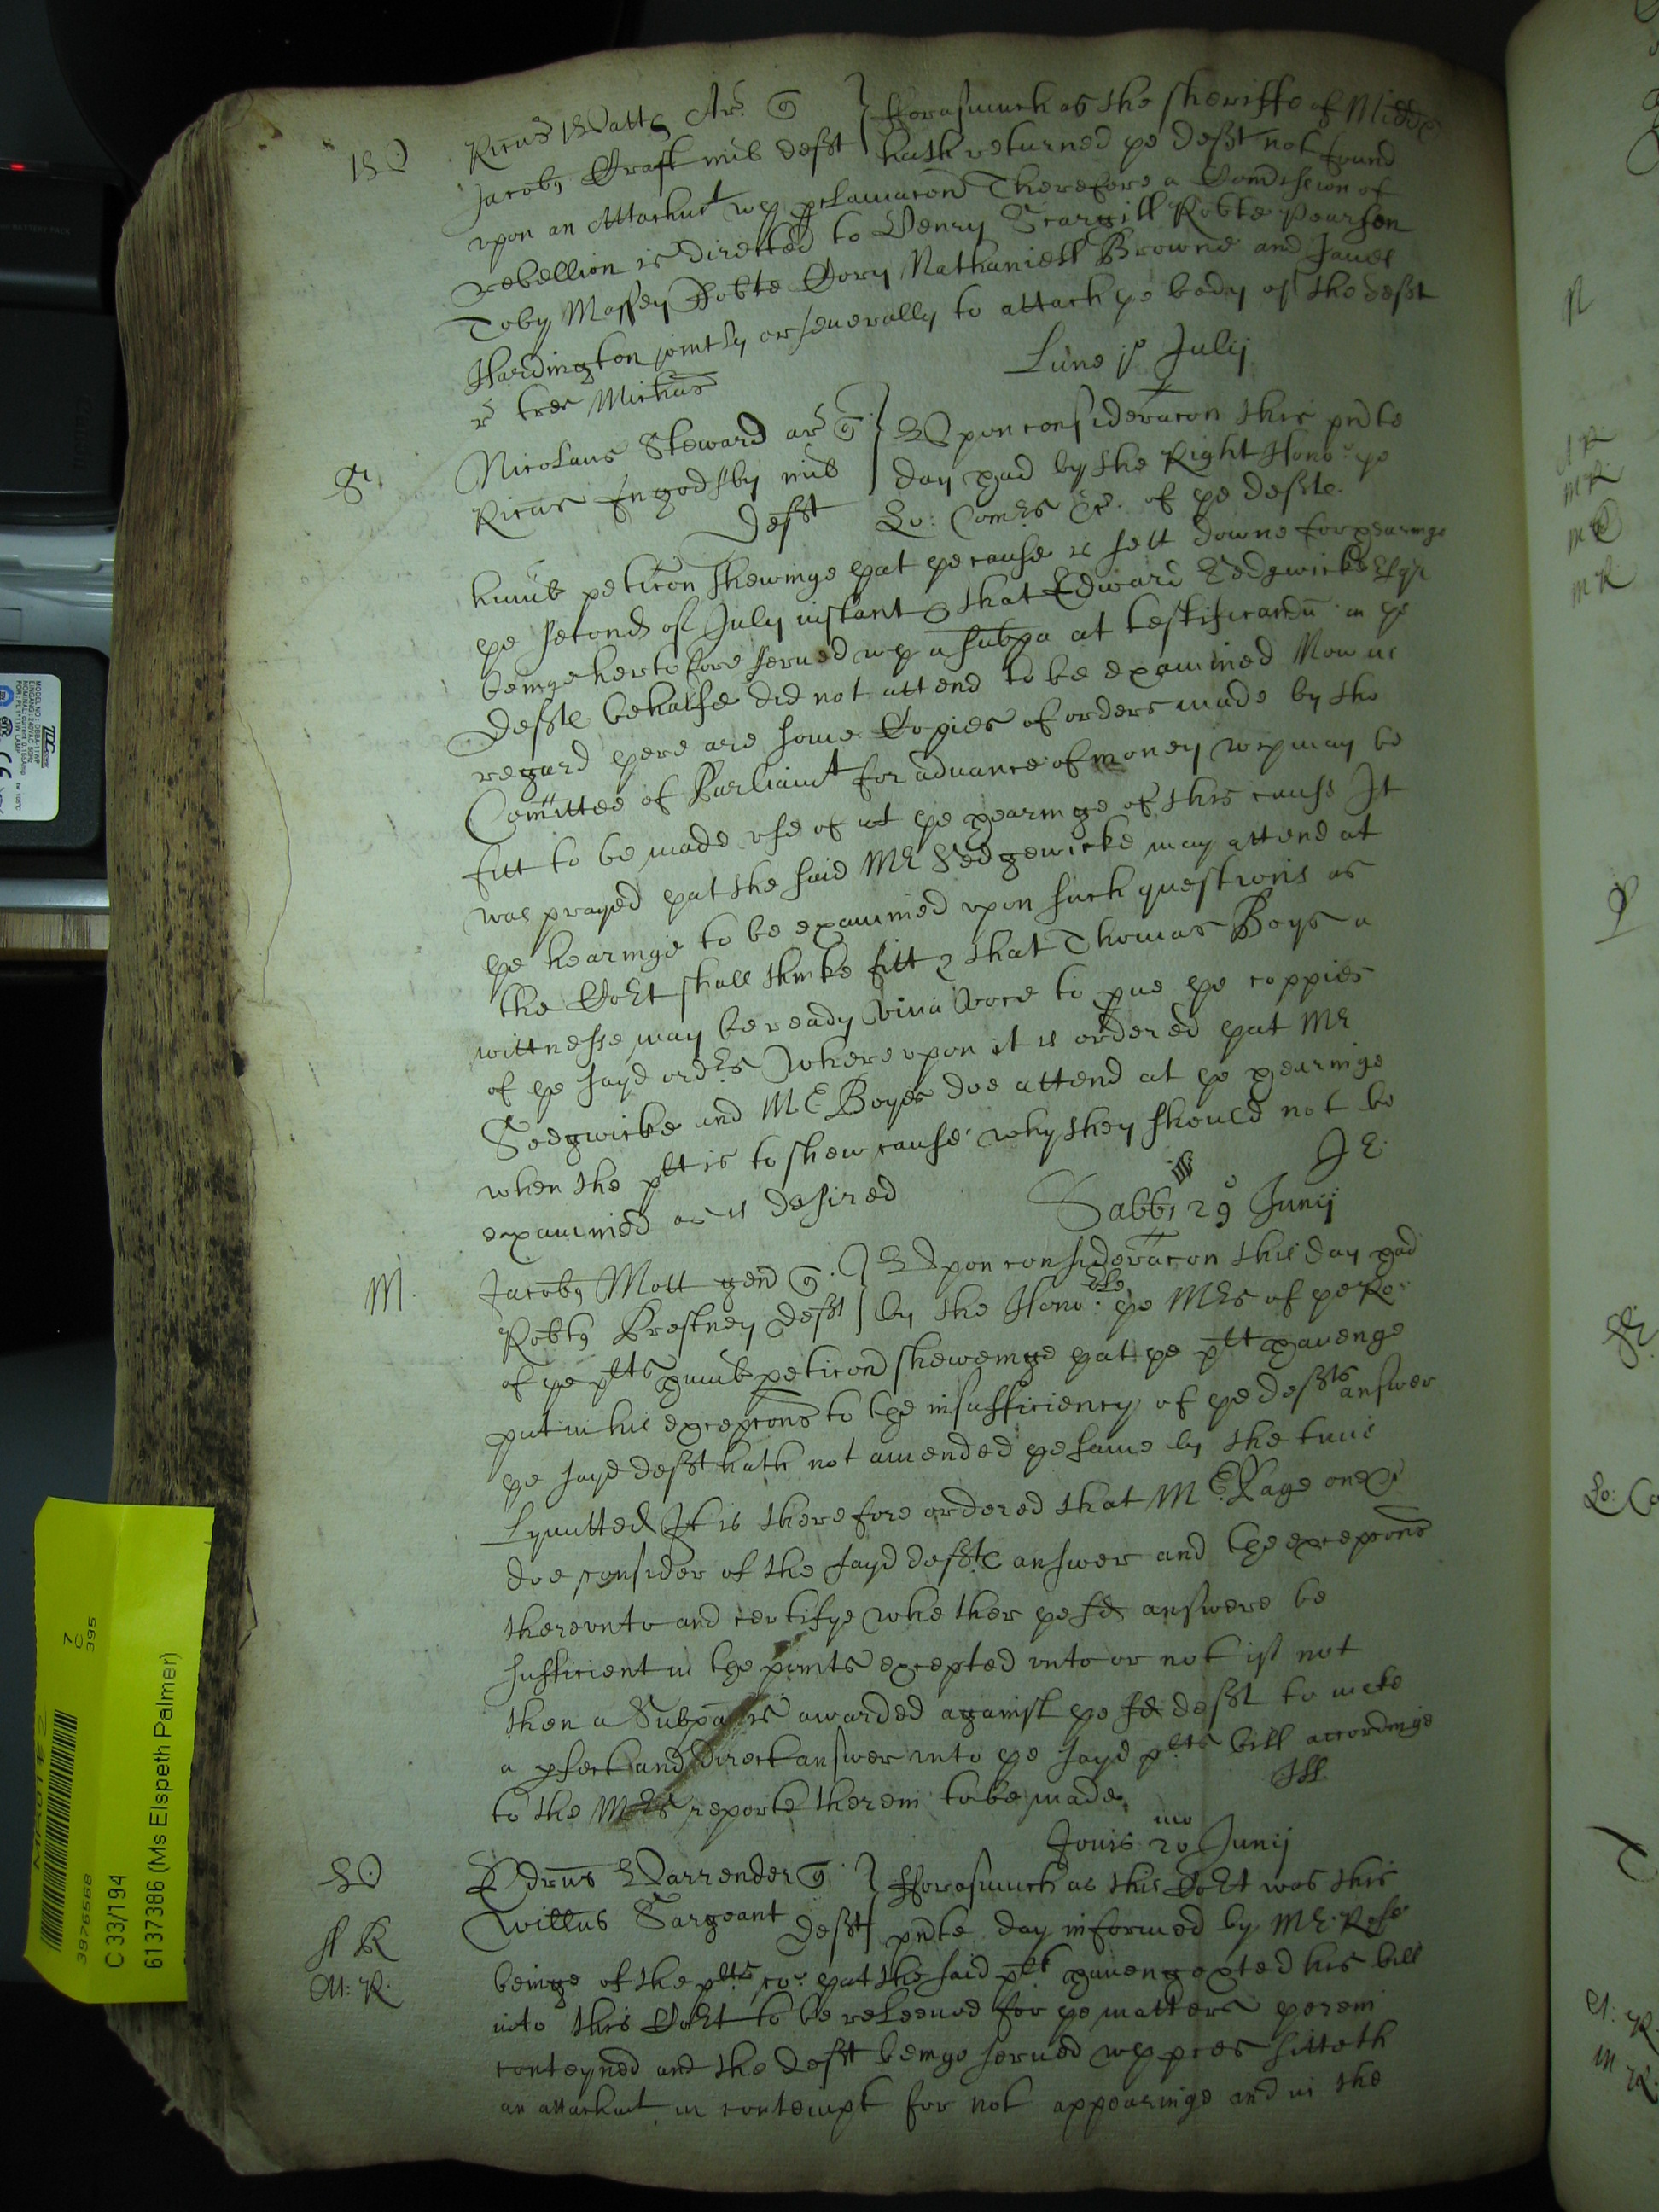 Ricus Watts Ar quer } Forasmuch as the sheriffe of Midds
Jacobus Craft mil defft } hath returned ye defft not found
upon an Attachmt wth pclamacon Therefore a Comission of
rebellion is directed to Henry Scargill Robte Pearson
Toby Massey Robte Cory Nathaniell Browne and James
Hardington jointly or severally to attach ye body of the defft
r tres Michas
Lune 1o Julij
Nicolaus Steward ar quer } Upon consideracon this pnte
Ricus Ingodsby mil } day had by the Right Honor ye
defft Lo: Comrs &c. of ye deffte
humb peticon shewinge yat ye cause is sett downe for hearinge
ye second of July instant & that Edward Sedgwicke Esqr
beinge hertofore served wth a subpa at testificandu in ye
deffte behalfe did not attend to be examined Now in
regard there are some Copies of orders made by the
Comittee of Parliamt for advance of money wch may be
fitt to be made use of at ye hearinge of this cause It
was prayed yat the said Mr Sedgewicke may attend at
ye hearinge to be examined upon such questions as
the Cort shall thinke fitt & that Thomas Boys a
wittnesse may be ready viva voce to pve ye coppies
of ye sayd ordrs Whereupon it is ordered yat Mr
Sedgwicke and Mr Boyes doe attend at ye hearinge
when the plt is to shew cause why they should not be
examined as is desired
Sabbi 29o Junij
M. Jacobus Mott gen quer } Upon consideracon this day had
Robtus Brestney defft } by the Honoble ye Mrs of ye Ro:
of ye plts humb peticon sheweinge yat ye plt haveinge
put in his excepcons to the insufficiency of ye deffts answer
ye sayd defft hath not amended ye same by the time
Lymitted It is therefore ordered that Mr Page one &c
doe consider of the sayd deffte answer and the excepcons
thereunto and certifye whether ye sd answere be
sufficient in the points excepted unto or not if not
then a Subpa is awarded against ye sd defft to make
a pfect and direct answer unto ye sayd plts bill accordinge
to the Mrs reporte therein to be made
Jovis 20mo Junij
Edrus Warrender quer } Forasmuch as this Cort was this
Willus Sargeant defft } pnte day informed by Mr
A R
M: R.
beinge of the plts co: yat the said plt haveing exted his bill
into this Cort to be releeved for ye matters therein
conteyned and the defft beinge served wth pces sitteth
an attachmt in contempt for not appearinge and in the
MODEL NO: DB8A-11WP
EINGANG: 240VAC 50Hz
FOR: PL111W LAMP
C 33/194
6137386 (Ms Elspeth Palmer)
3976568
7
C
395